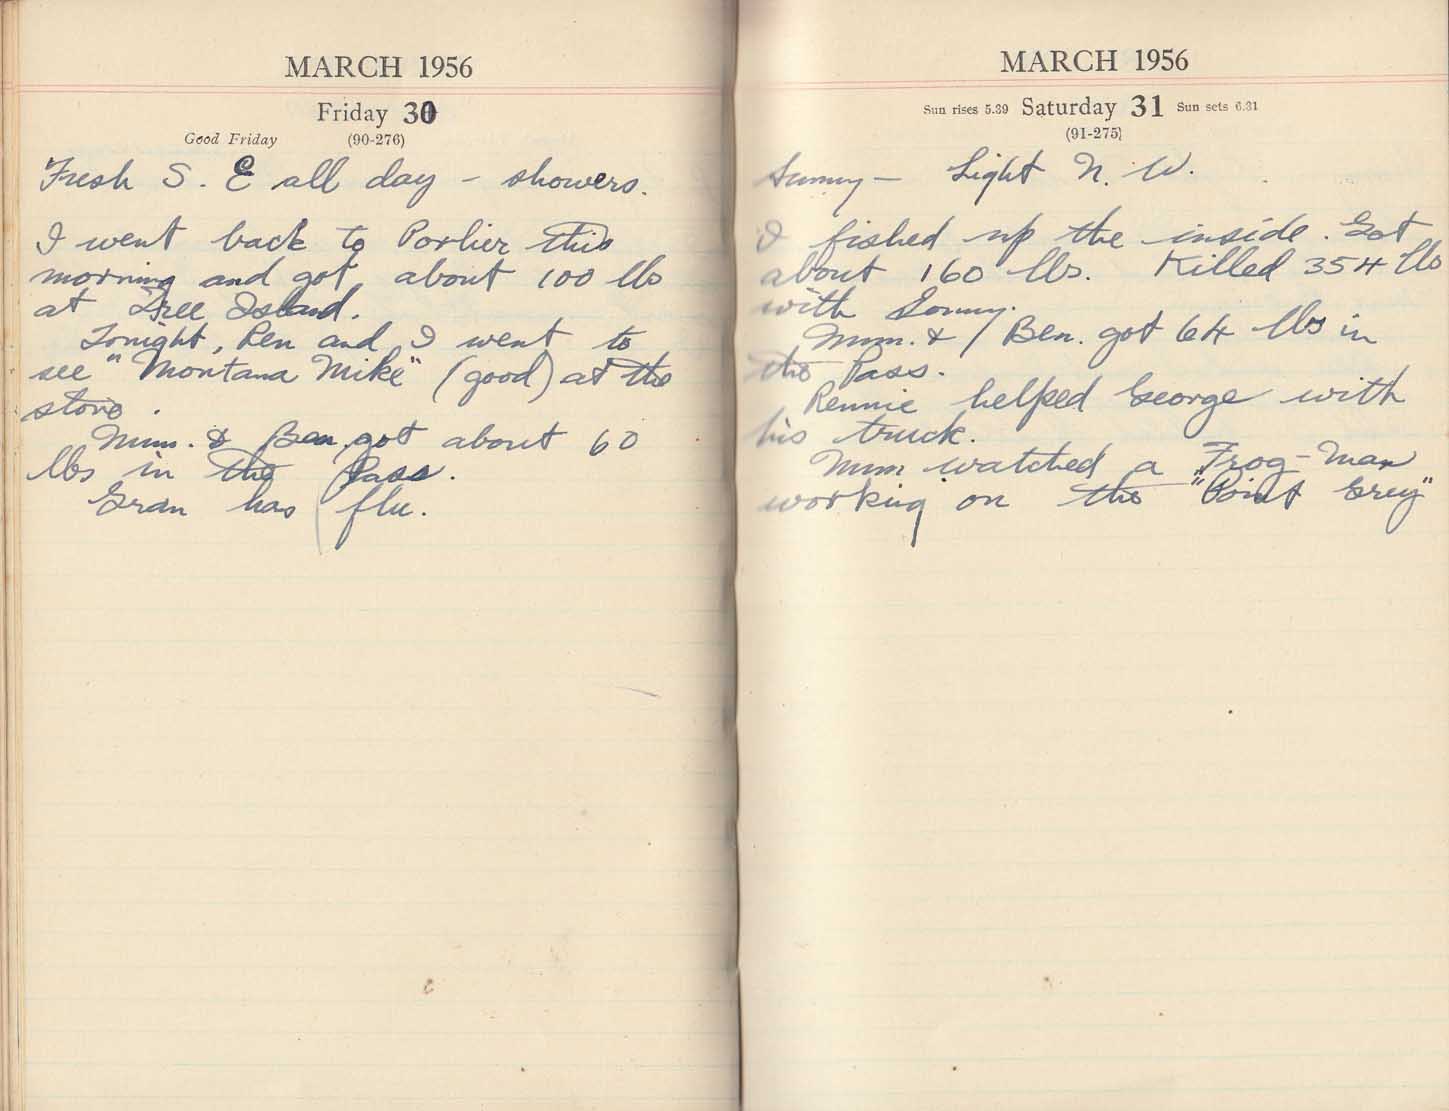 MARCH 1956
Friday 30
Good Friday (90-276)
Fresh S. E all day - showers.
I went back to Porlier this
morning and got about 100 lbs
at Tree Island.
Tonight, Ren and I went to
see "Montana Mike" (good) at the
store.
Mum. & Ben got about 60
lbs in the Pass.
Gran has flu.
MARCH 1956
Sun rises 5.39 Saturday 31 Sun sets 6.31
(91-275)
Sunny - Light N. W.
I fished up the inside. Got
about 160 lbs. Killed 354 lbs
with Sonny.
Mum. & Ben. got 64 lbs in
the Pass.
Rennie helped George with
his truck.
Mum watched a Frog-Man
working on the "Point Grey"